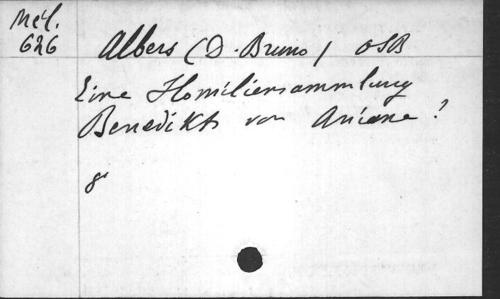 Mél.
626
Albers (D. Bruno) OSB
Eine Homiliensammlung
Benedikts von Aniane ?
8°